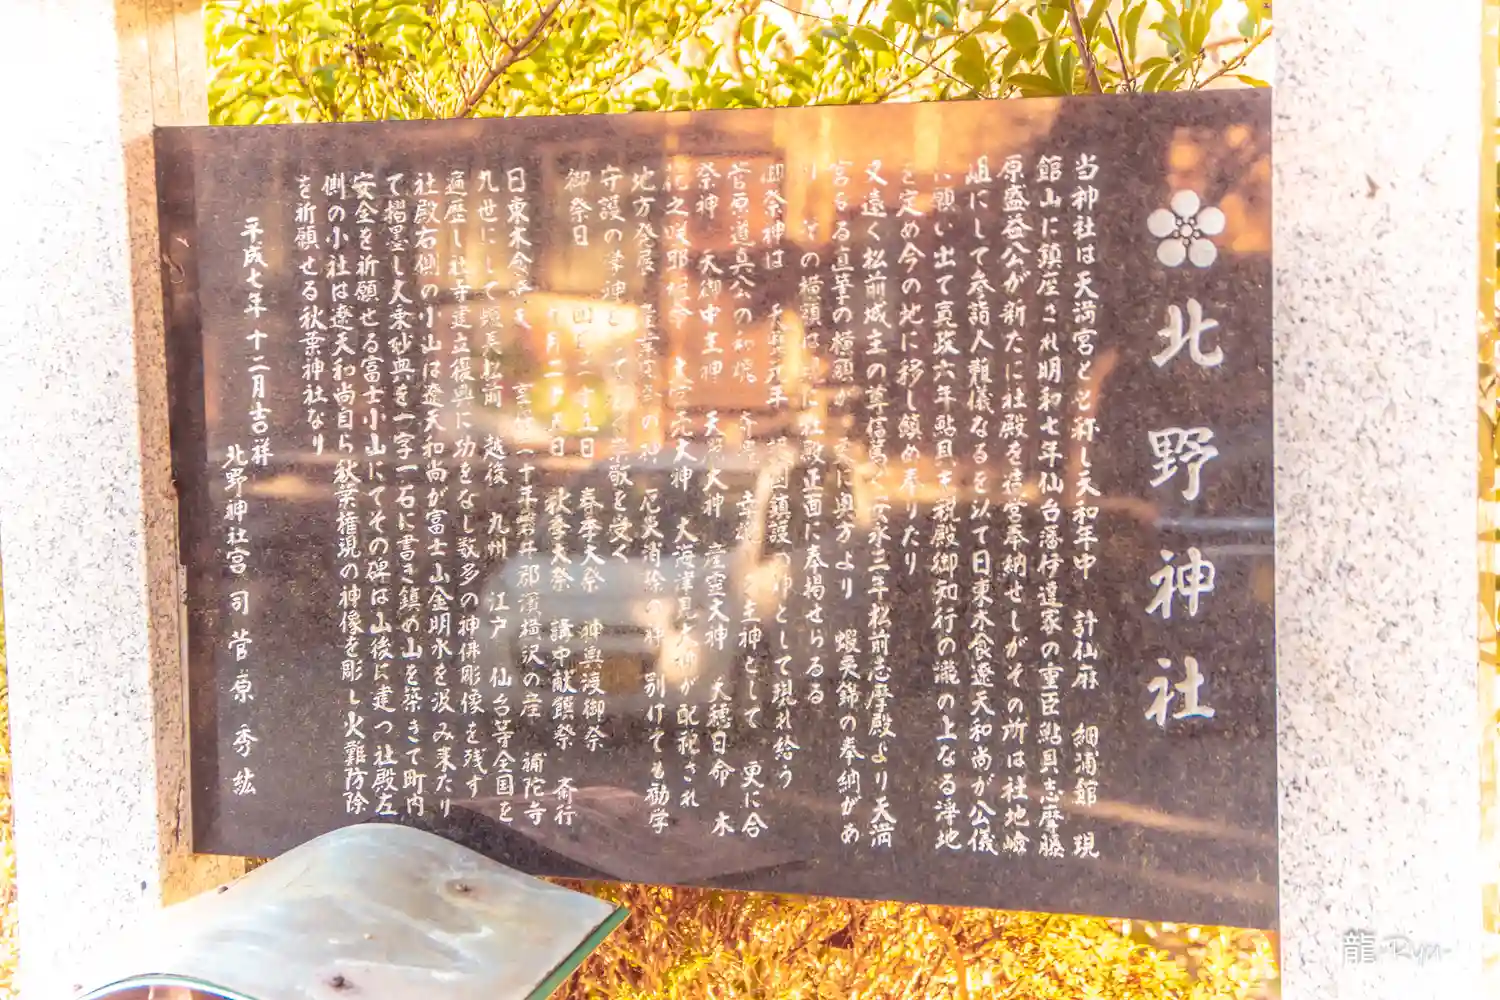 北野神社
当神社は天満宮とと称し天和年中　計仙麻　細浦館　現
館山に鎮座され明和七年仙台藩伊達家の重臣鮎貝志摩藤
原盛益公が新たに社殿を造宮奉納せしがその所は社地嶮
岨にして参詣人難儀なるを以て日東木食遼天和尚が公儀
に願い出て寛政六年鮎貝志摩殿御知行の瀧の上なる浄地
を定め今の地に移し鎮め奉りたり
又遠く松前城主の尊信篤く安永三年松前志摩殿より天満
宮なる直筆の横額が　更に奥方より　蝦夷錦の奉納があ
り　その横額は現に社殿正面に奉掲せらるる
御祭神は　天暦元年　護国鎮護の神として現れ給う
菅原道真公の和魂　主神として　更に合
祭神　天御中主神　天照大神　産霊大神　天穂日命　木
花之咲耶姫命　大海津見大神が配祀され
地方発展　産業　の神　厄災消除の神　別けても勧学
守護の学神として　崇敬を受く
御祭日　四月二十五日　春季大祭　神輿渡御祭
月二十五日　秋季大祭　講中献饌祭　斎行
日東木食遼天　二十年磐井郡濱横沢の産　補陀寺
九世にして　松前　越後　九州　江戸　仙台等全国を
遍歴し社寺建立復興に功をなし数多の神佛彫像を残す
社殿右側の小山は遼天和尚が富士山金明水を汲み来たり
て摺墨し大乗妙典を一字一石に書き鎮め山を築きて町内
安全を祈願せる富士小山にてその碑は山後に建つ社殿左
側の小社は遼天和尚自ら秋葉権現の神像を彫し火難防除
を祈願せる秋葉神社なり
平成七年十二月吉祥
北野神社宮司　菅原秀紘
龍-Ryu-